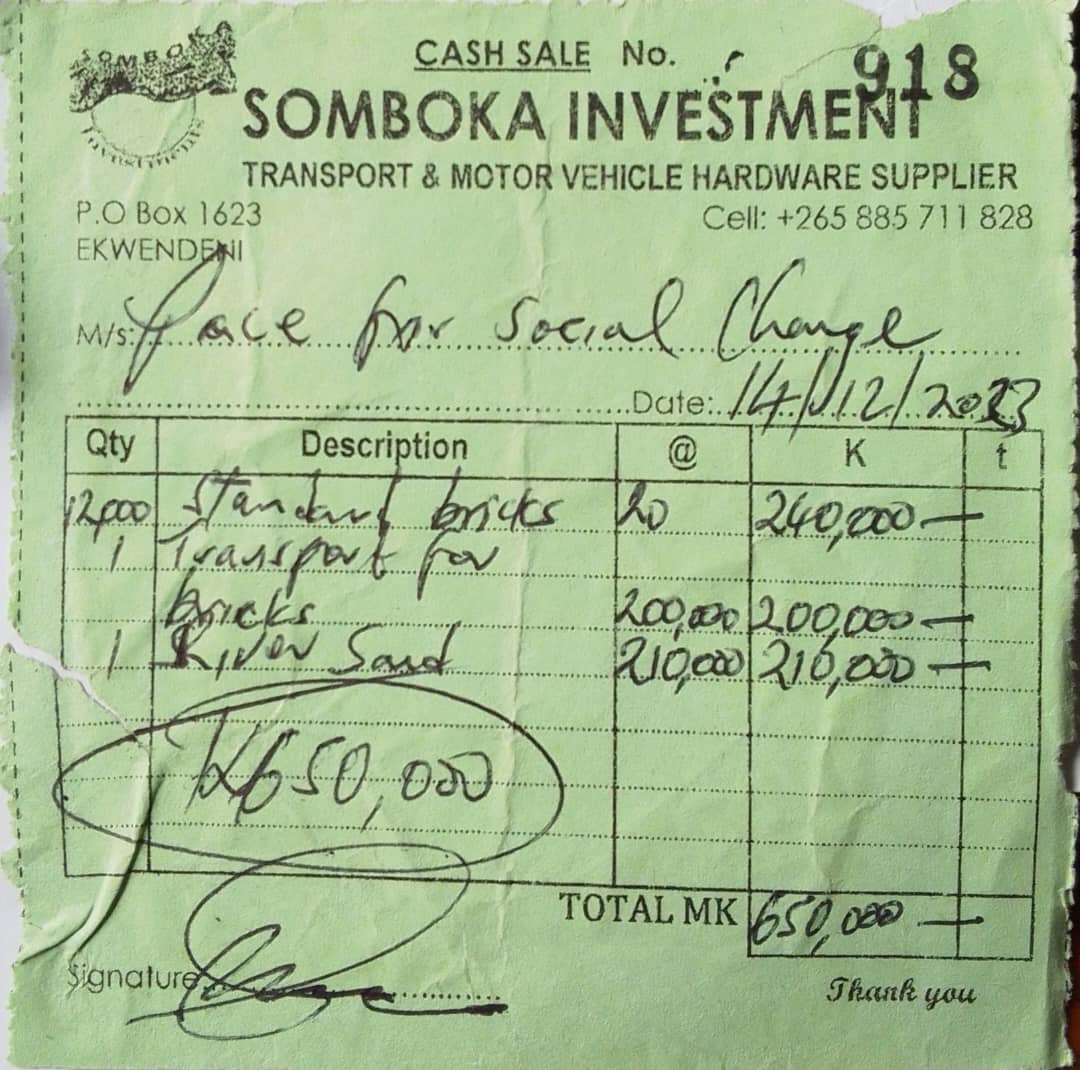 SOMBOKA
Investments
CASH SALE No. 918
SOMBOKA INVESTMENT
TRANSPORT & MOTOR VEHICLE HARDWARE SUPPLIER
P.O Box 1623 Cell: +265 885 711 828
EKWENDENI
M/s: Pace for Social Change
Date: 14/12/2023
Qty Description @ K t
12,000 Standard bricks 20 240,000 —
1 Transport for
bricks 200,000 200,000 —
1 River Sand 210,000 210,000 —
K650,000
TOTAL MK 650,000 —
Signature
Thank you